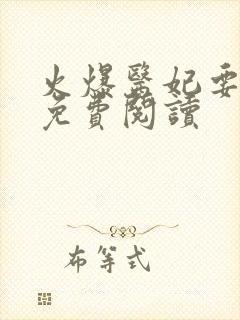 火爆醫妃要
免費閱讀
布等式